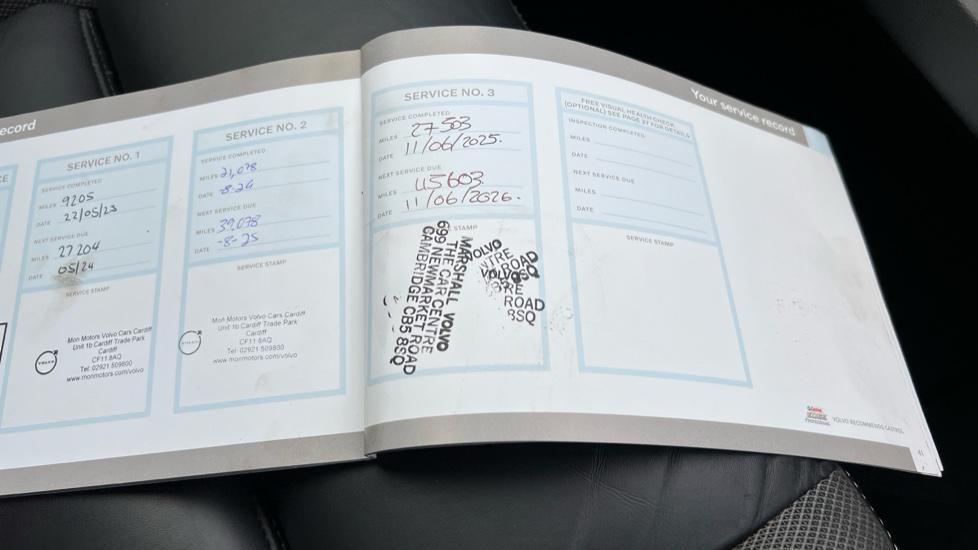 ecord
CE
SERVICE NO. 1
SERVICE COMPLETED
MILES 9205
DATE 22/05/23
NEXT SERVICE DUE
MILES 27204
DATE 05/24
SERVICE STAMP
Mon Motors Volvo Cars Cardiff
Unit 1b Cardiff Trade Park
Cardiff
CF11 8AQ
Tel: 02921 509800
www.monmotors.com/volvo
VOLVO
SERVICE NO. 2
SERVICE COMPLETED
MILES 21,078
DATE -8-24
NEXT SERVICE DUE
MILES 39,078
DATE -8-25
SERVICE STAMP
Mon Motors Volvo Cars Cardiff
Unit 1b Cardiff Trade Park
Cardiff
CF11 8AQ
Tel: 02921 509800
www.monmotors.com/volvo
SERVICE NO. 3
SERVICE COMPLETED
MILES 27503
DATE 11/06/2025.
NEXT SERVICE DUE
MILES 45603.
DATE 11/06/2026.
STAMP
MARSHALL VOLVO
THE CAR CENTRE
699 NEWMARKET ROAD
CAMBRIDGE CB5 8SQ
VOLVO
NTRE
ROAD
8SQ
Your service record
FREE VISUAL HEALTH CHECK
(OPTIONAL) SEE PAGE 27 FOR DETAILS
INSPECTION COMPLETED
MILES
DATE
NEXT SERVICE DUE
MILES
DATE
SERVICE STAMP
VOLVO RECOMMENDS CASTROL
41